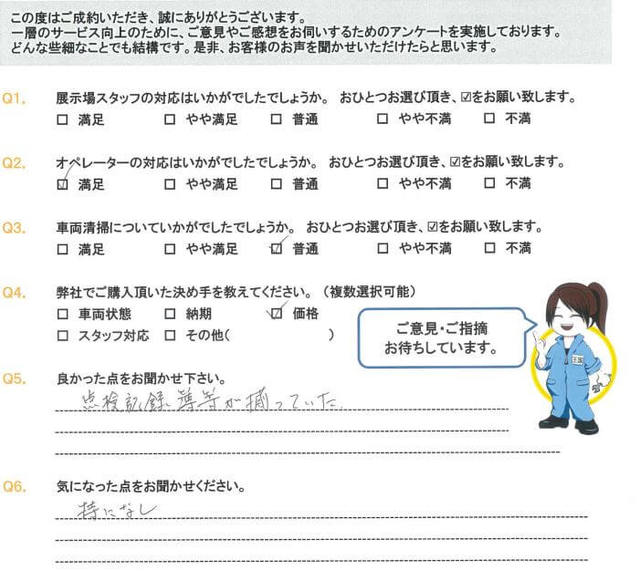 この度はご成約いただき、誠にありがとうございます。
一層のサービス向上のために、ご意見やご感想をお伺いするためのアンケートを実施しております。
どんな些細なことでも結構です。是非、お客様のお声を聞かせいただけたらと思います。
Q1. 展示場スタッフの対応はいかがでしたでしょうか。 おひとつお選び頂き、☑をお願い致します。
☐ 満足 ☐ やや満足 ☐ 普通 ☐ やや不満 ☐ 不満
Q2. オペレーターの対応はいかがでしたでしょうか。 おひとつお選び頂き、☑をお願い致します。
☑ 満足 ☐ やや満足 ☐ 普通 ☐ やや不満 ☐ 不満
Q3. 車両清掃についていかがでしたでしょうか。 おひとつお選び頂き、☑をお願い致します。
☐ 満足 ☐ やや満足 ☑ 普通 ☐ やや不満 ☐ 不満
Q4. 弊社でご購入頂いた決め手を教えてください。（複数選択可能）
☐ 車両状態 ☐ 納期 ☑ 価格
☐ スタッフ対応 ☐ その他( )
ご意見・ご指摘
お待ちしています。
Q5. 良かった点をお聞かせ下さい。
点検記録簿等が揃っていた。
Q6. 気になった点をお聞かせください。
特になし